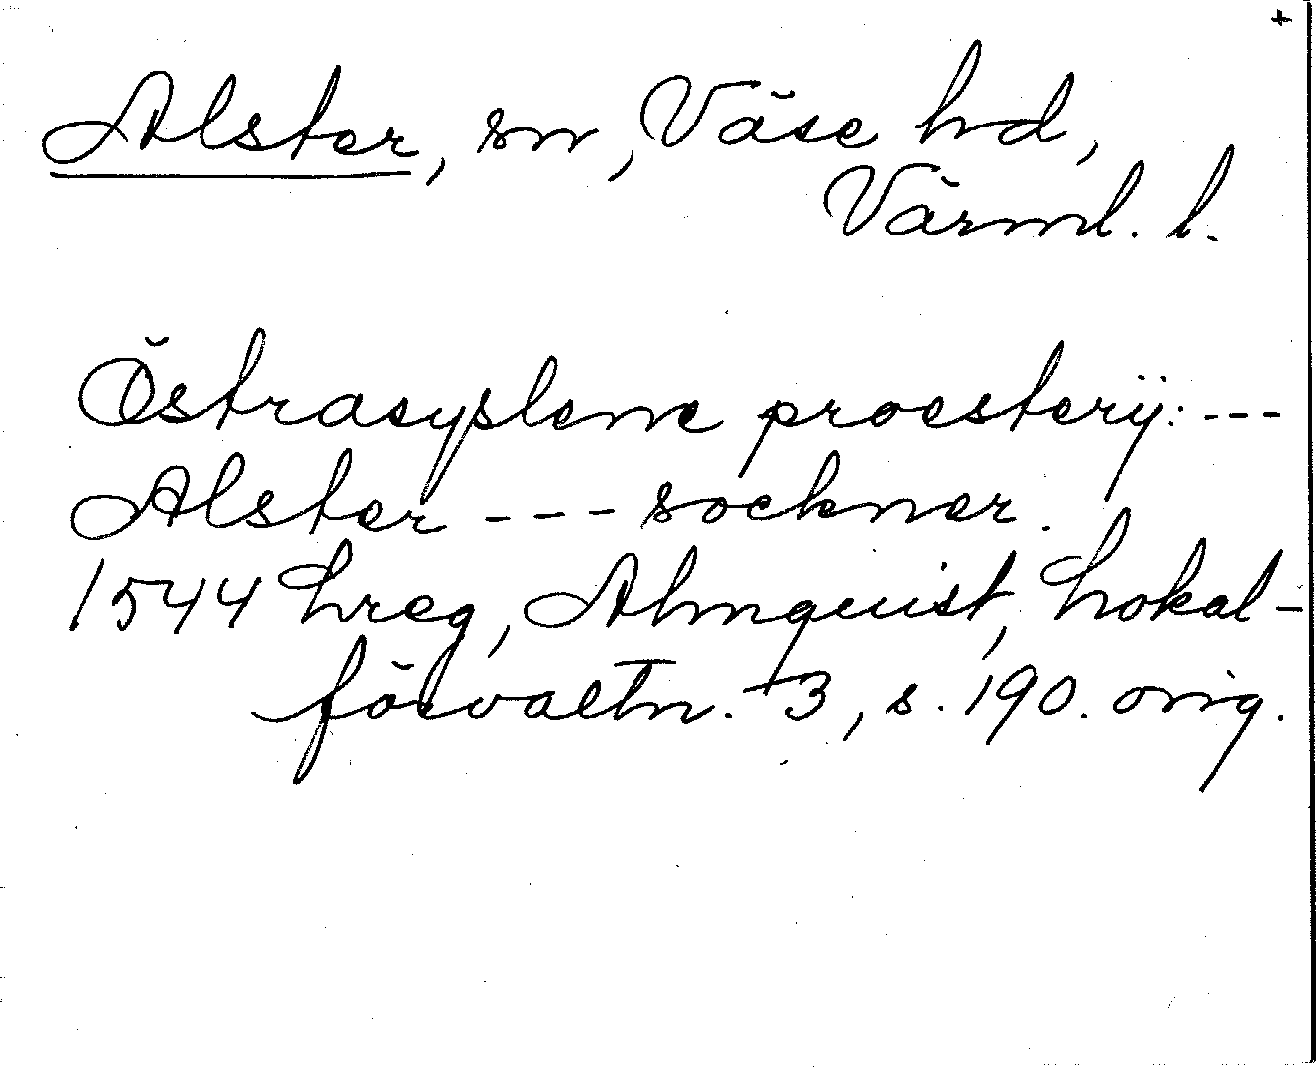 +
Alster, sn, Väse hd,
Värml. l.
Östrasyslene proesterij: ---
Alster --- sockner.
1544 Lreg, Almquist, Lokal-
förvaltn. 3, s. 190. orig.